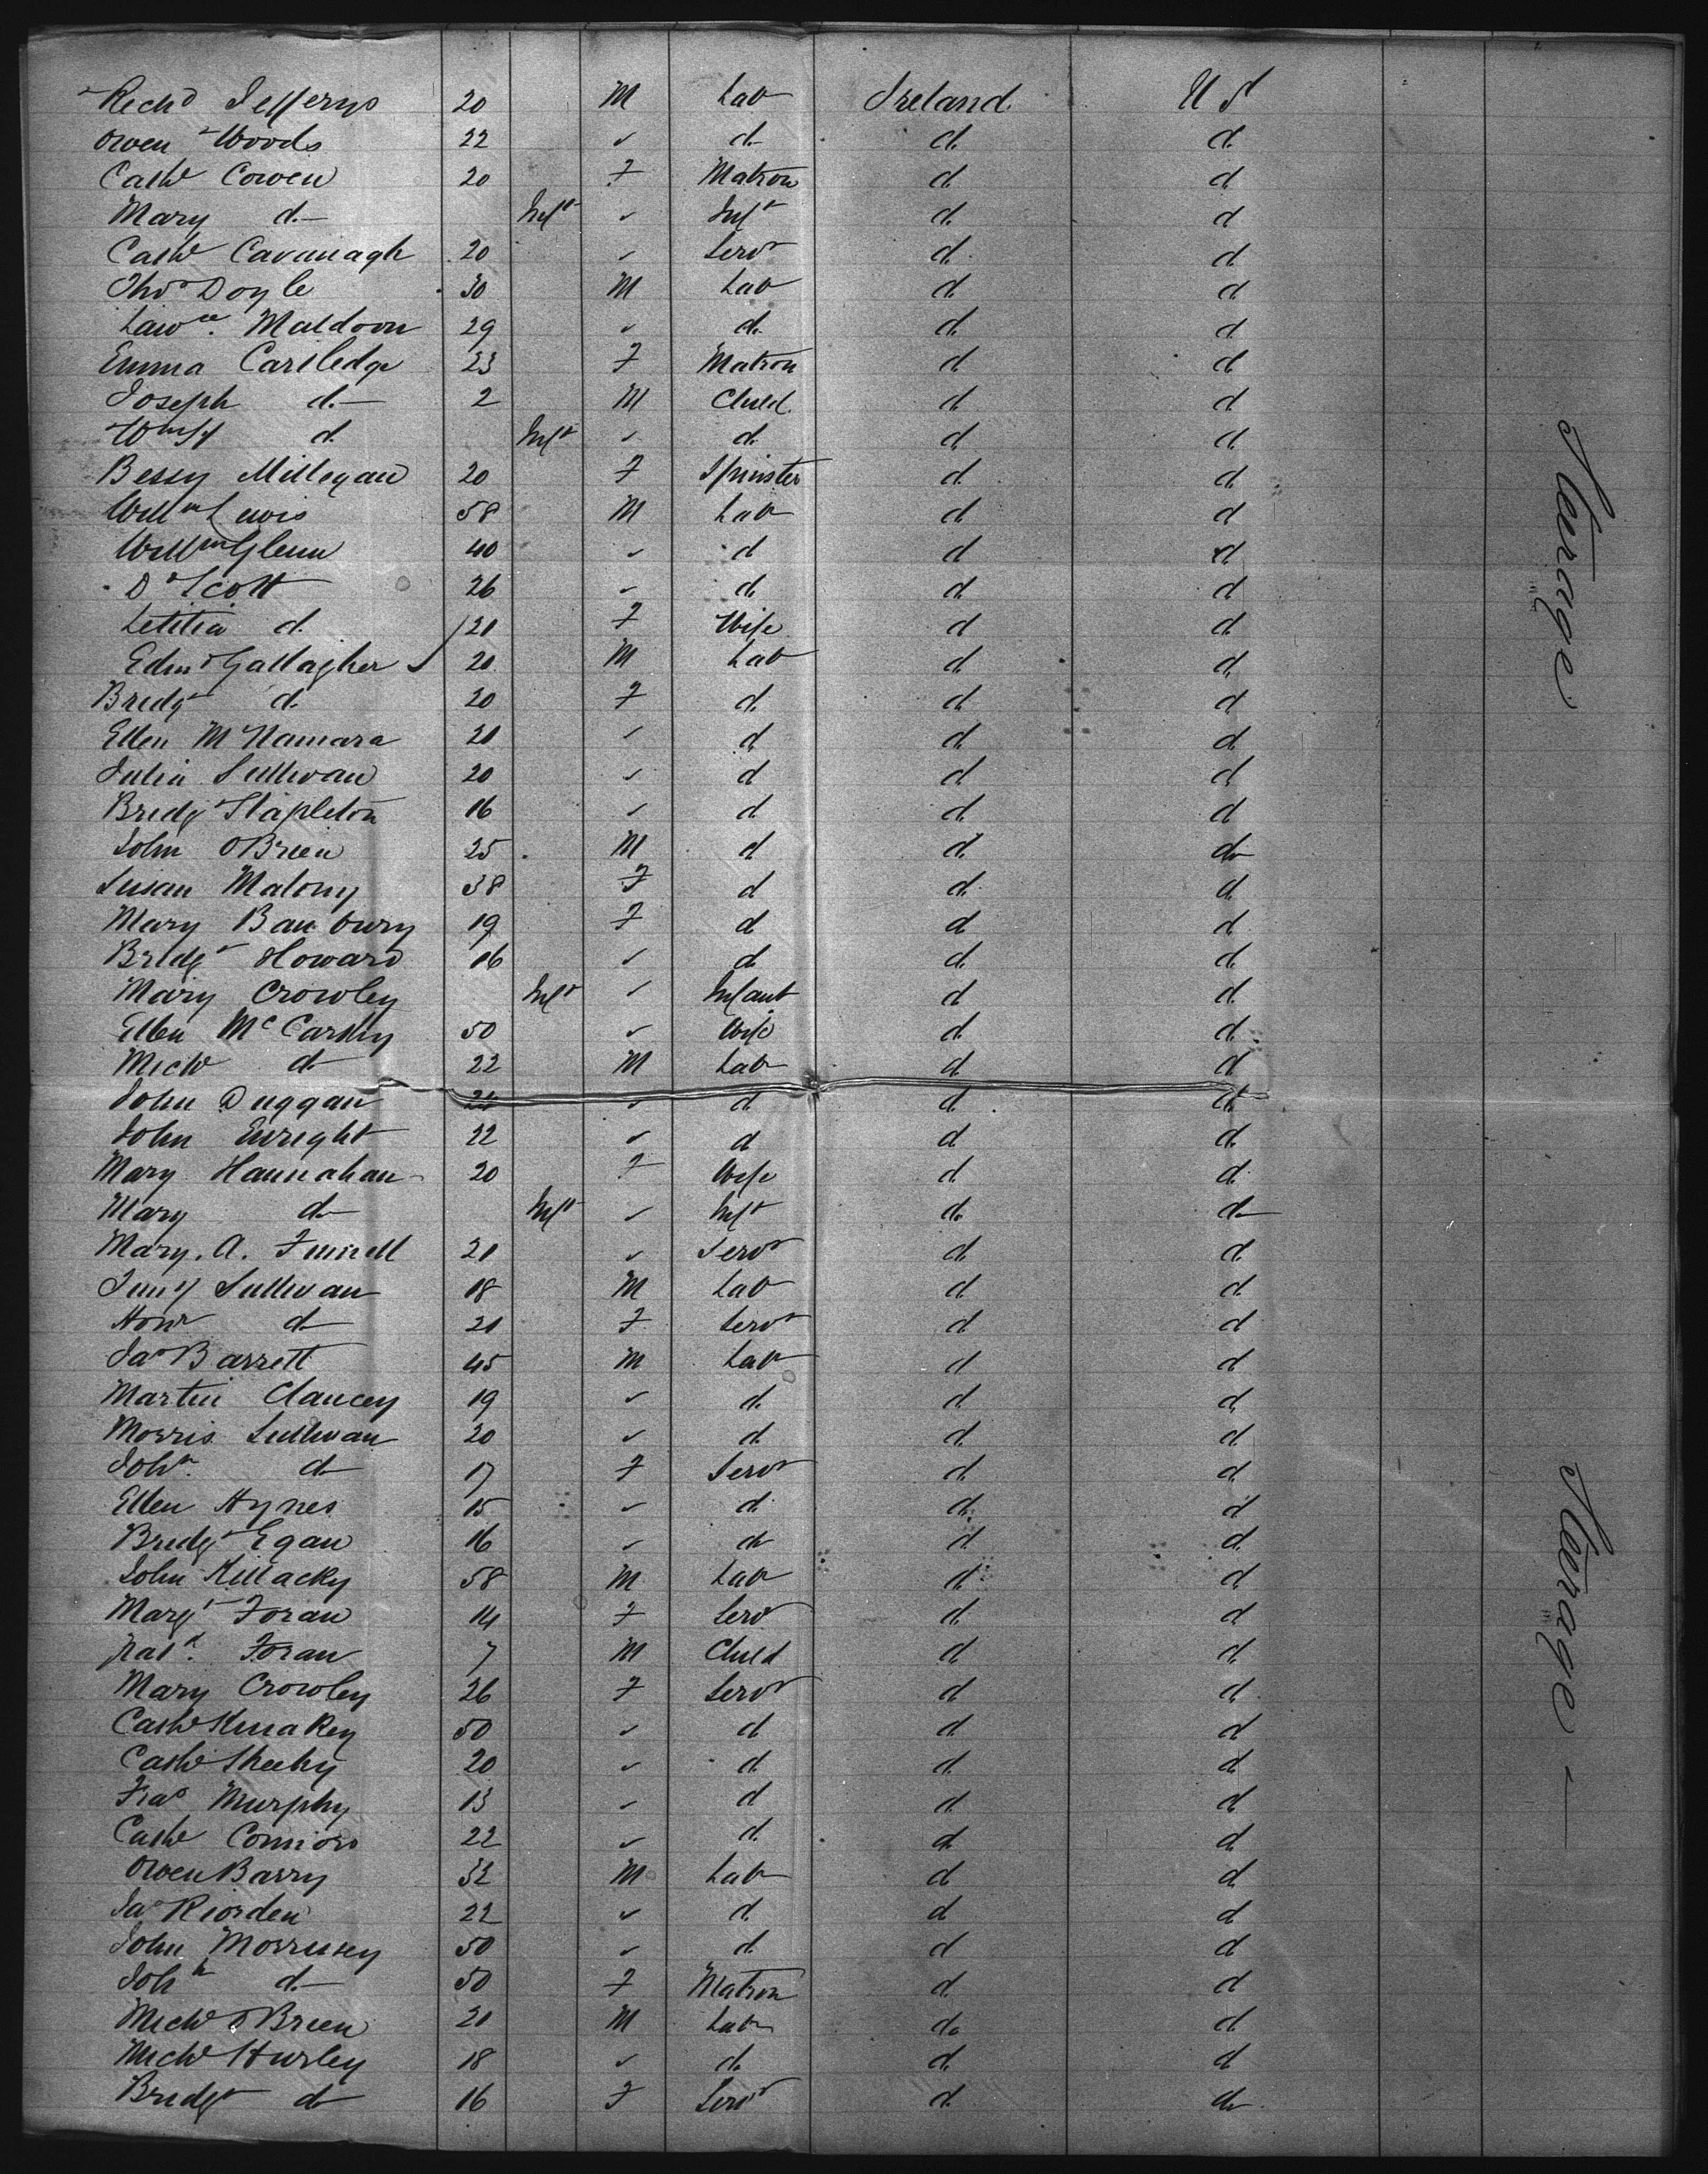 Richd Jefferys 20 M Lab Ireland U S
Owen Woods 22 " d d d
Cathe Cowen 20 F Matron d d
Mary d Inft " Inft d d
Cathe Cavanagh 20 " Servt d d
Thos Doyle 30 M Lab d d
Lawce Muldoon 29 " d d d
Emma Cartledge 23 F Matron d d
Joseph d 2 M Child d d
Wm H d Inft " d d d
Bessy Millegan 20 F Spinster d d
Willm Lewis 58 M Lab d d
Willm Glenn 40 " d d d
D Scott 26 " d d d
Letitia d 20 F Wife d d
Edmd Gallagher 20 M Lab d d
Bridgt d 20 F d d d
Ellen McNamara 20 " d d d
Julia Sullivan 20 " d d d
Bridgt Stapleton 16 " d d d
John OBrien 25 M d d do
Susan Malony 38 F d d d
Mary Banbury 19 F d d d
Bridgt Howard 16 " d d d
Mary Crowley Inft " Infant d d
Ellen McCarthy 50 " Wife d d
Michl d 22 M Lab d d
John Duggan " d d d
John Enright 22 " d d d
Mary Hannahan 20 F Wife d d
Mary d Inft " Inft do do
Mary A. Funnell 20 " Servt d d
Timy Sullivan 18 M Lab d d
Honr d 20 F Servt d d
Jas Barrett 45 M Lab d d
Martin Clancey 19 " d d d
Morris Sullivan 20 " d d d
Joha d 17 F Servt d d
Ellen Hynes 15 " d d d
Bridgt Egan 16 " do d d
John Killacky 58 M Lab d d
Margt Foran 14 F Servt d d
Patk Foran 7 M Child d d
Mary Crowley 26 F Servt d d
Cathe 50 " d d d
Cathe Sheehy 20 " d d d
Fras Murphy 13 " d d d
Cathe Connors 22 " d d d
Owen Barry 32 M Lab d d
Jas Riorden 22 " d d d
John Morrissey 50 " d d d
Joha d 50 F Matron d d
Michl OBrien 20 M Lab do d
Michl Hurley 18 " d d d
Bridgt do 16 F Servt d do
Steerage
Steerage